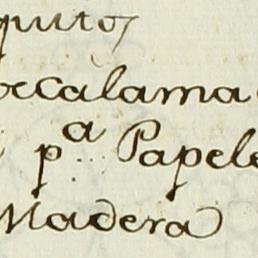 quitos
ocalama
pª Papele
Madera